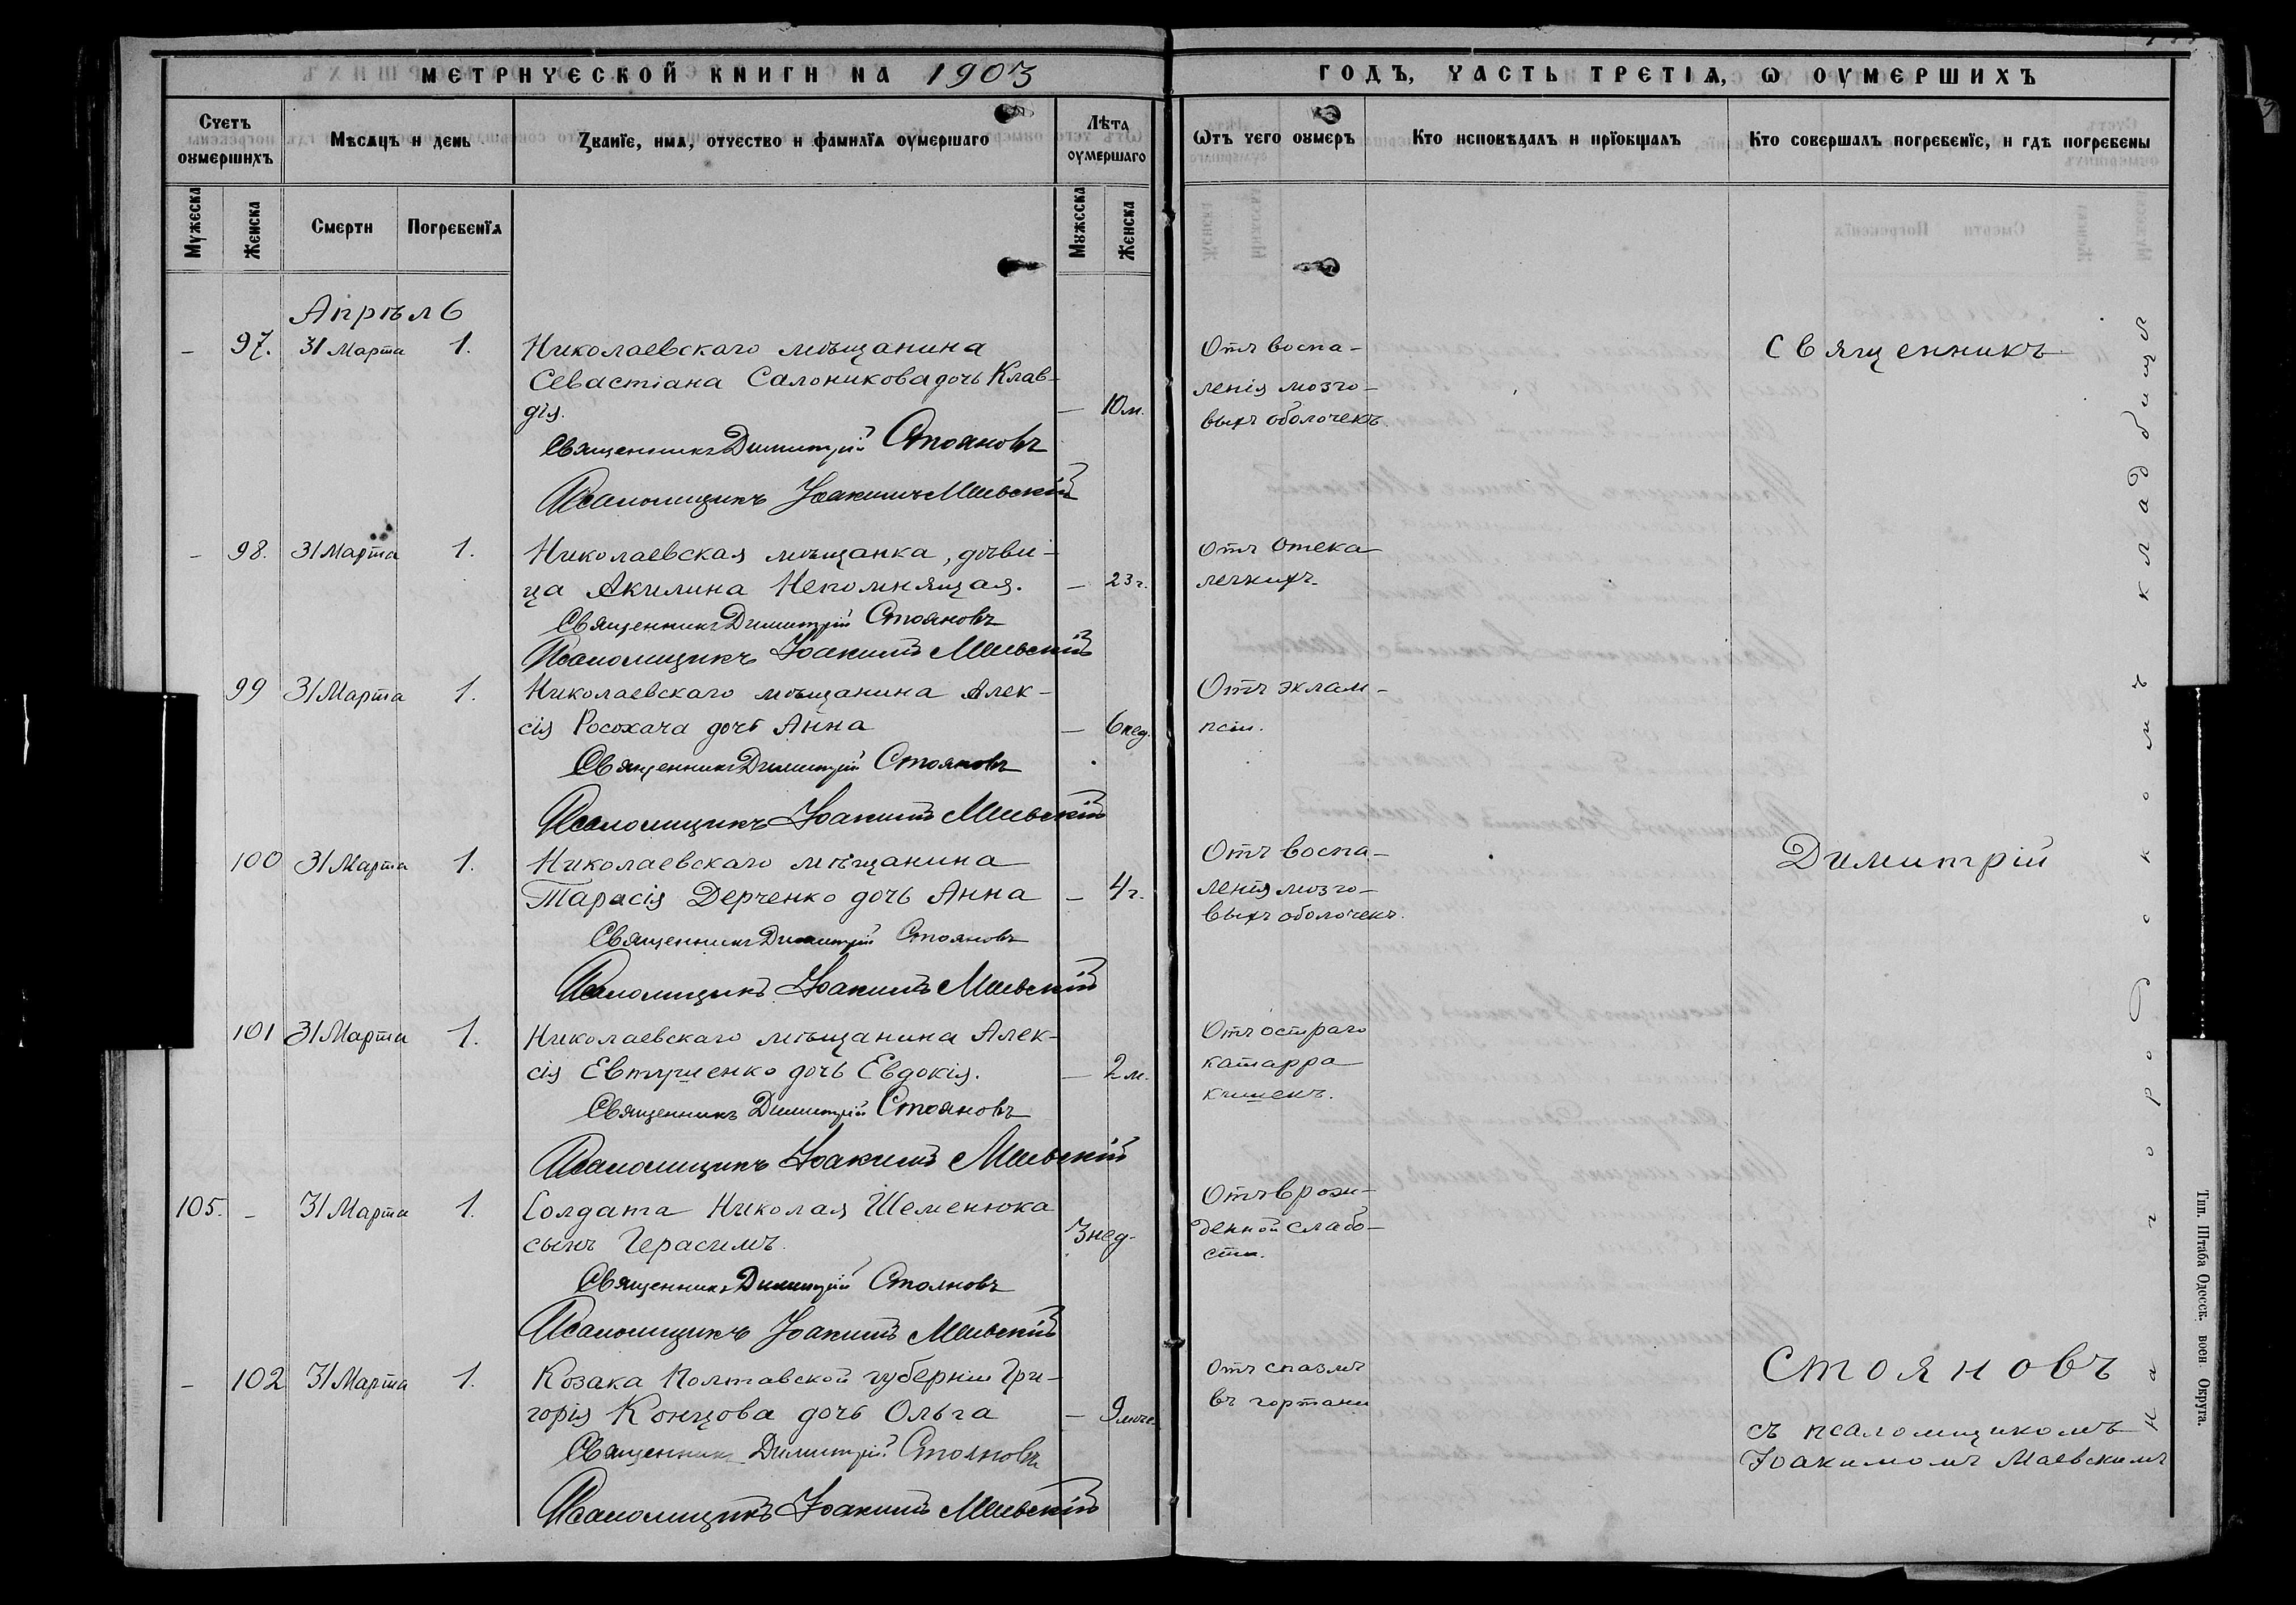 МЕТРИЧЕСКОЙ КНИГИ НА 1903
ГОДЪ, ЧАСТЬ ТРЕТІѦ, Ѡ ОУМЕРШИХЪ
Счетъ оумершихъ
Мѣсяцъ и день
Званїе, имѧ, отчество и фамилїѧ оумершаго
Лѣта оумершаго
Ѿтъ чего оумеръ
Кто исповѣдалъ и прїобщалъ
Кто совершалъ погребенїе, и гдѣ погребены
Мужеска
Женска
Смерти
Погребенїѧ
Мужеска
Женска
Апрѣль
– 97. 31 Марта 1.
Николаевскаго мѣщанина
Севастіана Салоникова дочь Клав-
дія. – 10 м.
Отъ воспа-
ленія мозго-
выхъ оболочекъ.
Священникъ Димитрій Стояновъ
Псаломщикъ Іоакимъ Маевскій
– 98. 31 Марта 1.
Николаевская мѣщанка, дѣви-
ца Акилина Непомнящая. – 23 г.
Отъ отека
легкихъ.
Священникъ Димитрій Стояновъ
Псаломщикъ Іоакимъ Маевскій
99 31 Марта 1.
Николаевскаго мѣщанина Алек-
сія Росохача дочь Анна – 6 нед.
Отъ эклам-
псіи.
Священникъ Димитрій Стояновъ
Псаломщикъ Іоакимъ Маевскій
100 31 Марта 1.
Николаевскаго мѣщанина
Тарасія Дерченко дочь Анна – 4 г.
Отъ воспа-
ленія мозго-
выхъ оболочекъ.
Священникъ Димитрій Стояновъ
Псаломщикъ Іоакимъ Маевскій
101 31 Марта 1.
Николаевскаго мѣщанина Алек-
сія Евтушенко дочь Евдокія. – 2 м.
Отъ остраго
катарра
кишекъ.
Священникъ Димитрій Стояновъ
Псаломщикъ Іоакимъ Маевскій
105. – 31 Марта 1.
Солдата Николая Шеменюка
сынъ Герасимъ. 3 нед.
Отъ врож-
денной слабо-
сти.
Священникъ Димитрій Стояновъ
Псаломщикъ Іоакимъ Маевскій
– 102 31 Марта 1.
Козака Полтавской губерніи Гри-
горія Концова дочь Ольга – 9 мѣс.
Отъ спазмъ
въ гортани
Священникъ Димитрій Стояновъ
Псаломщикъ Іоакимъ Маевскій
Священникъ
Димитрій
Стояновъ
съ псаломщикомъ
Іоакимомъ Маевскимъ
на городскомъ кладбищѣ
Тип. Штаба Одесск. воен. Округа.